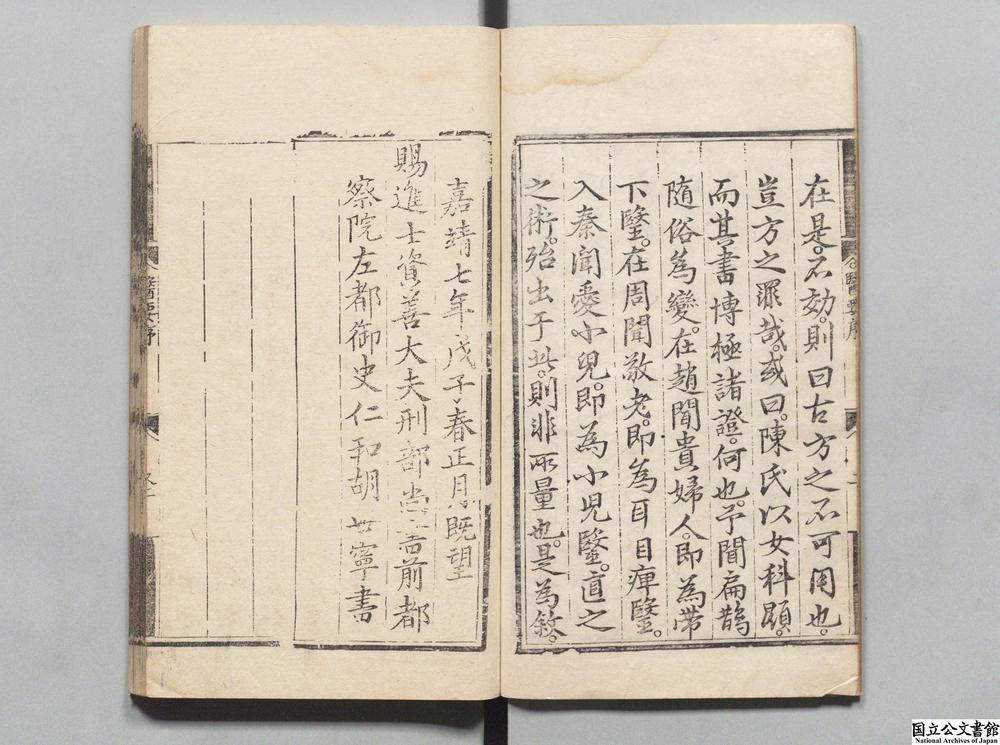 在是。不効。則曰古方之不可用也。
豈方之罪哉。或曰。陳氏以女科顯。
而其書博極諸證。何也。予聞扁鵲
隨俗為變。在趙聞貴婦人。即為帶
下醫。在周聞敬老。即為耳目痺醫。
入秦聞愛小兒。即為小兒醫。道之
之術。殆出于此。則非所量也。是為敘。
嘉靖七年戊子春正月既望
賜進士資善大夫刑部尚書前都
察院左都御史仁和胡世寧書
国立公文書館
National Archives of Japan